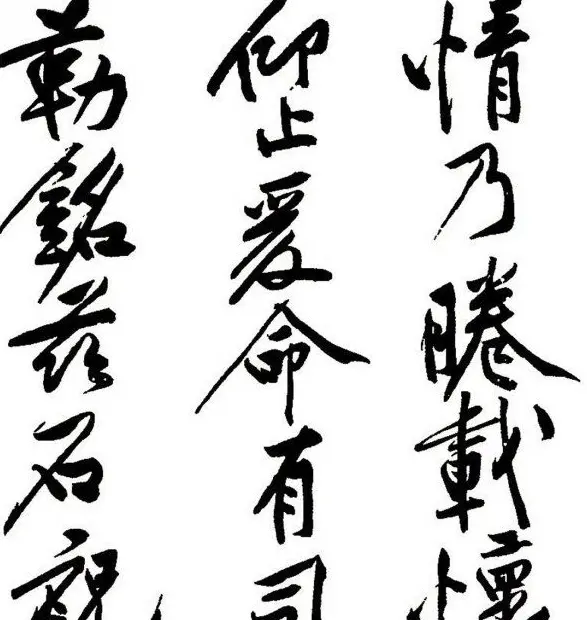 情乃睠載懷
仰止爰命有司
勒銘茲石